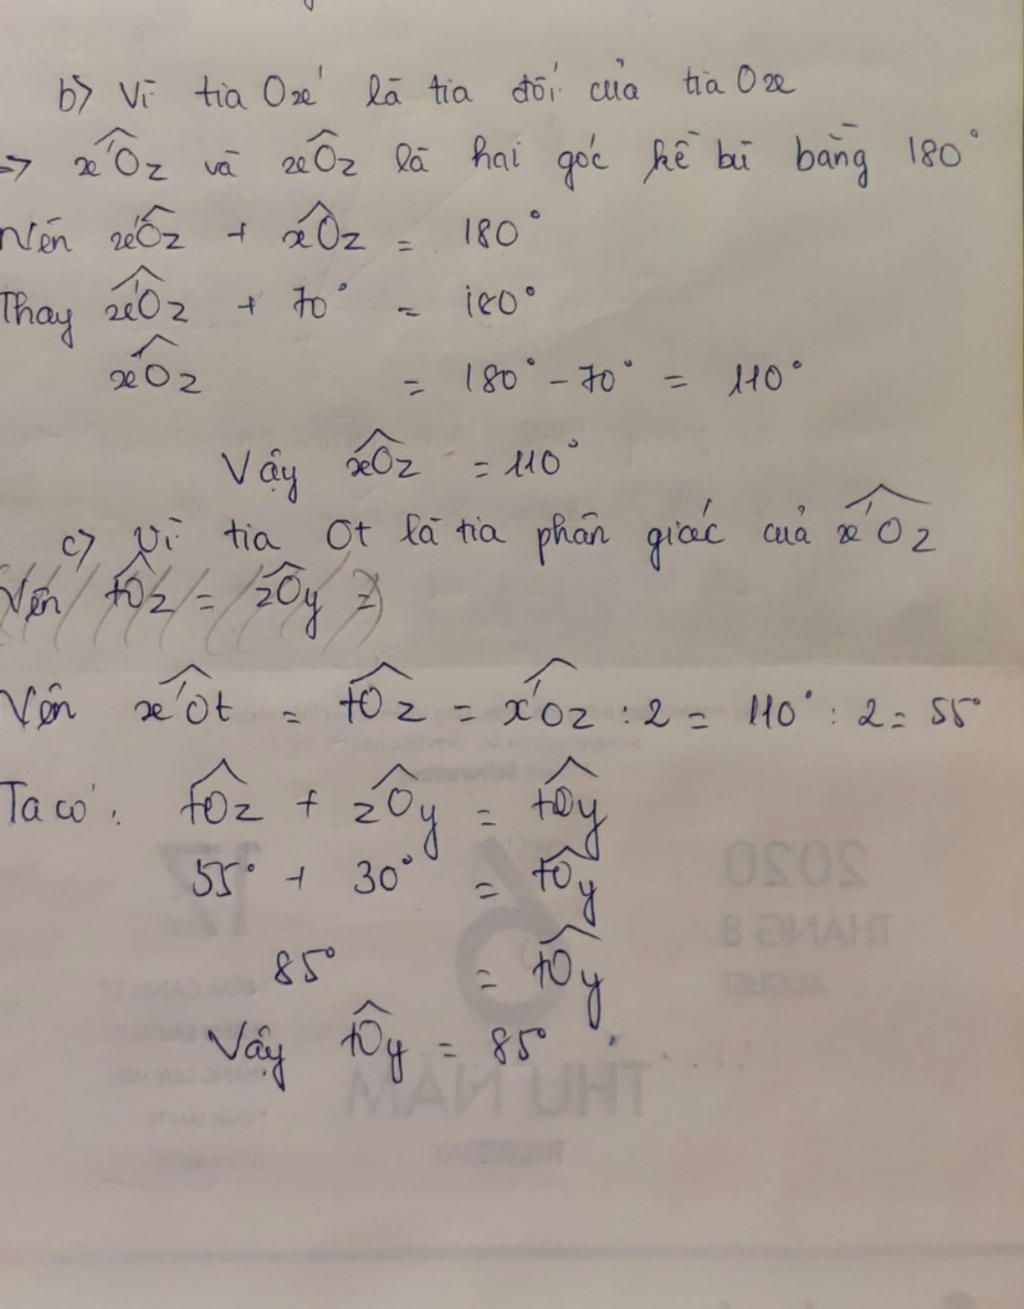 b) Vì tia Ox' là tia đối của tia Ox
=> x'Oz và xOz là hai góc kề bù bằng 180°
Nên x'Oz + xOz = 180°
Thay x'Oz + 70° = 180°
x'Oz = 180° - 70° = 110°
Vậy x'Oz = 110°
c) Vì tia Ot là tia phân giác của x'Oz
Nên tOz = zOy =
Nên x'Ot = tOz = x'Oz : 2 = 110° : 2 = 55°
Ta có: tOz + zOy = tOy
55° + 30° = tOy
85° = tOy
Vậy tOy = 85°
17 6 2020
THÁNG 8
AUGUST
THỨ NĂM
THURSDAY